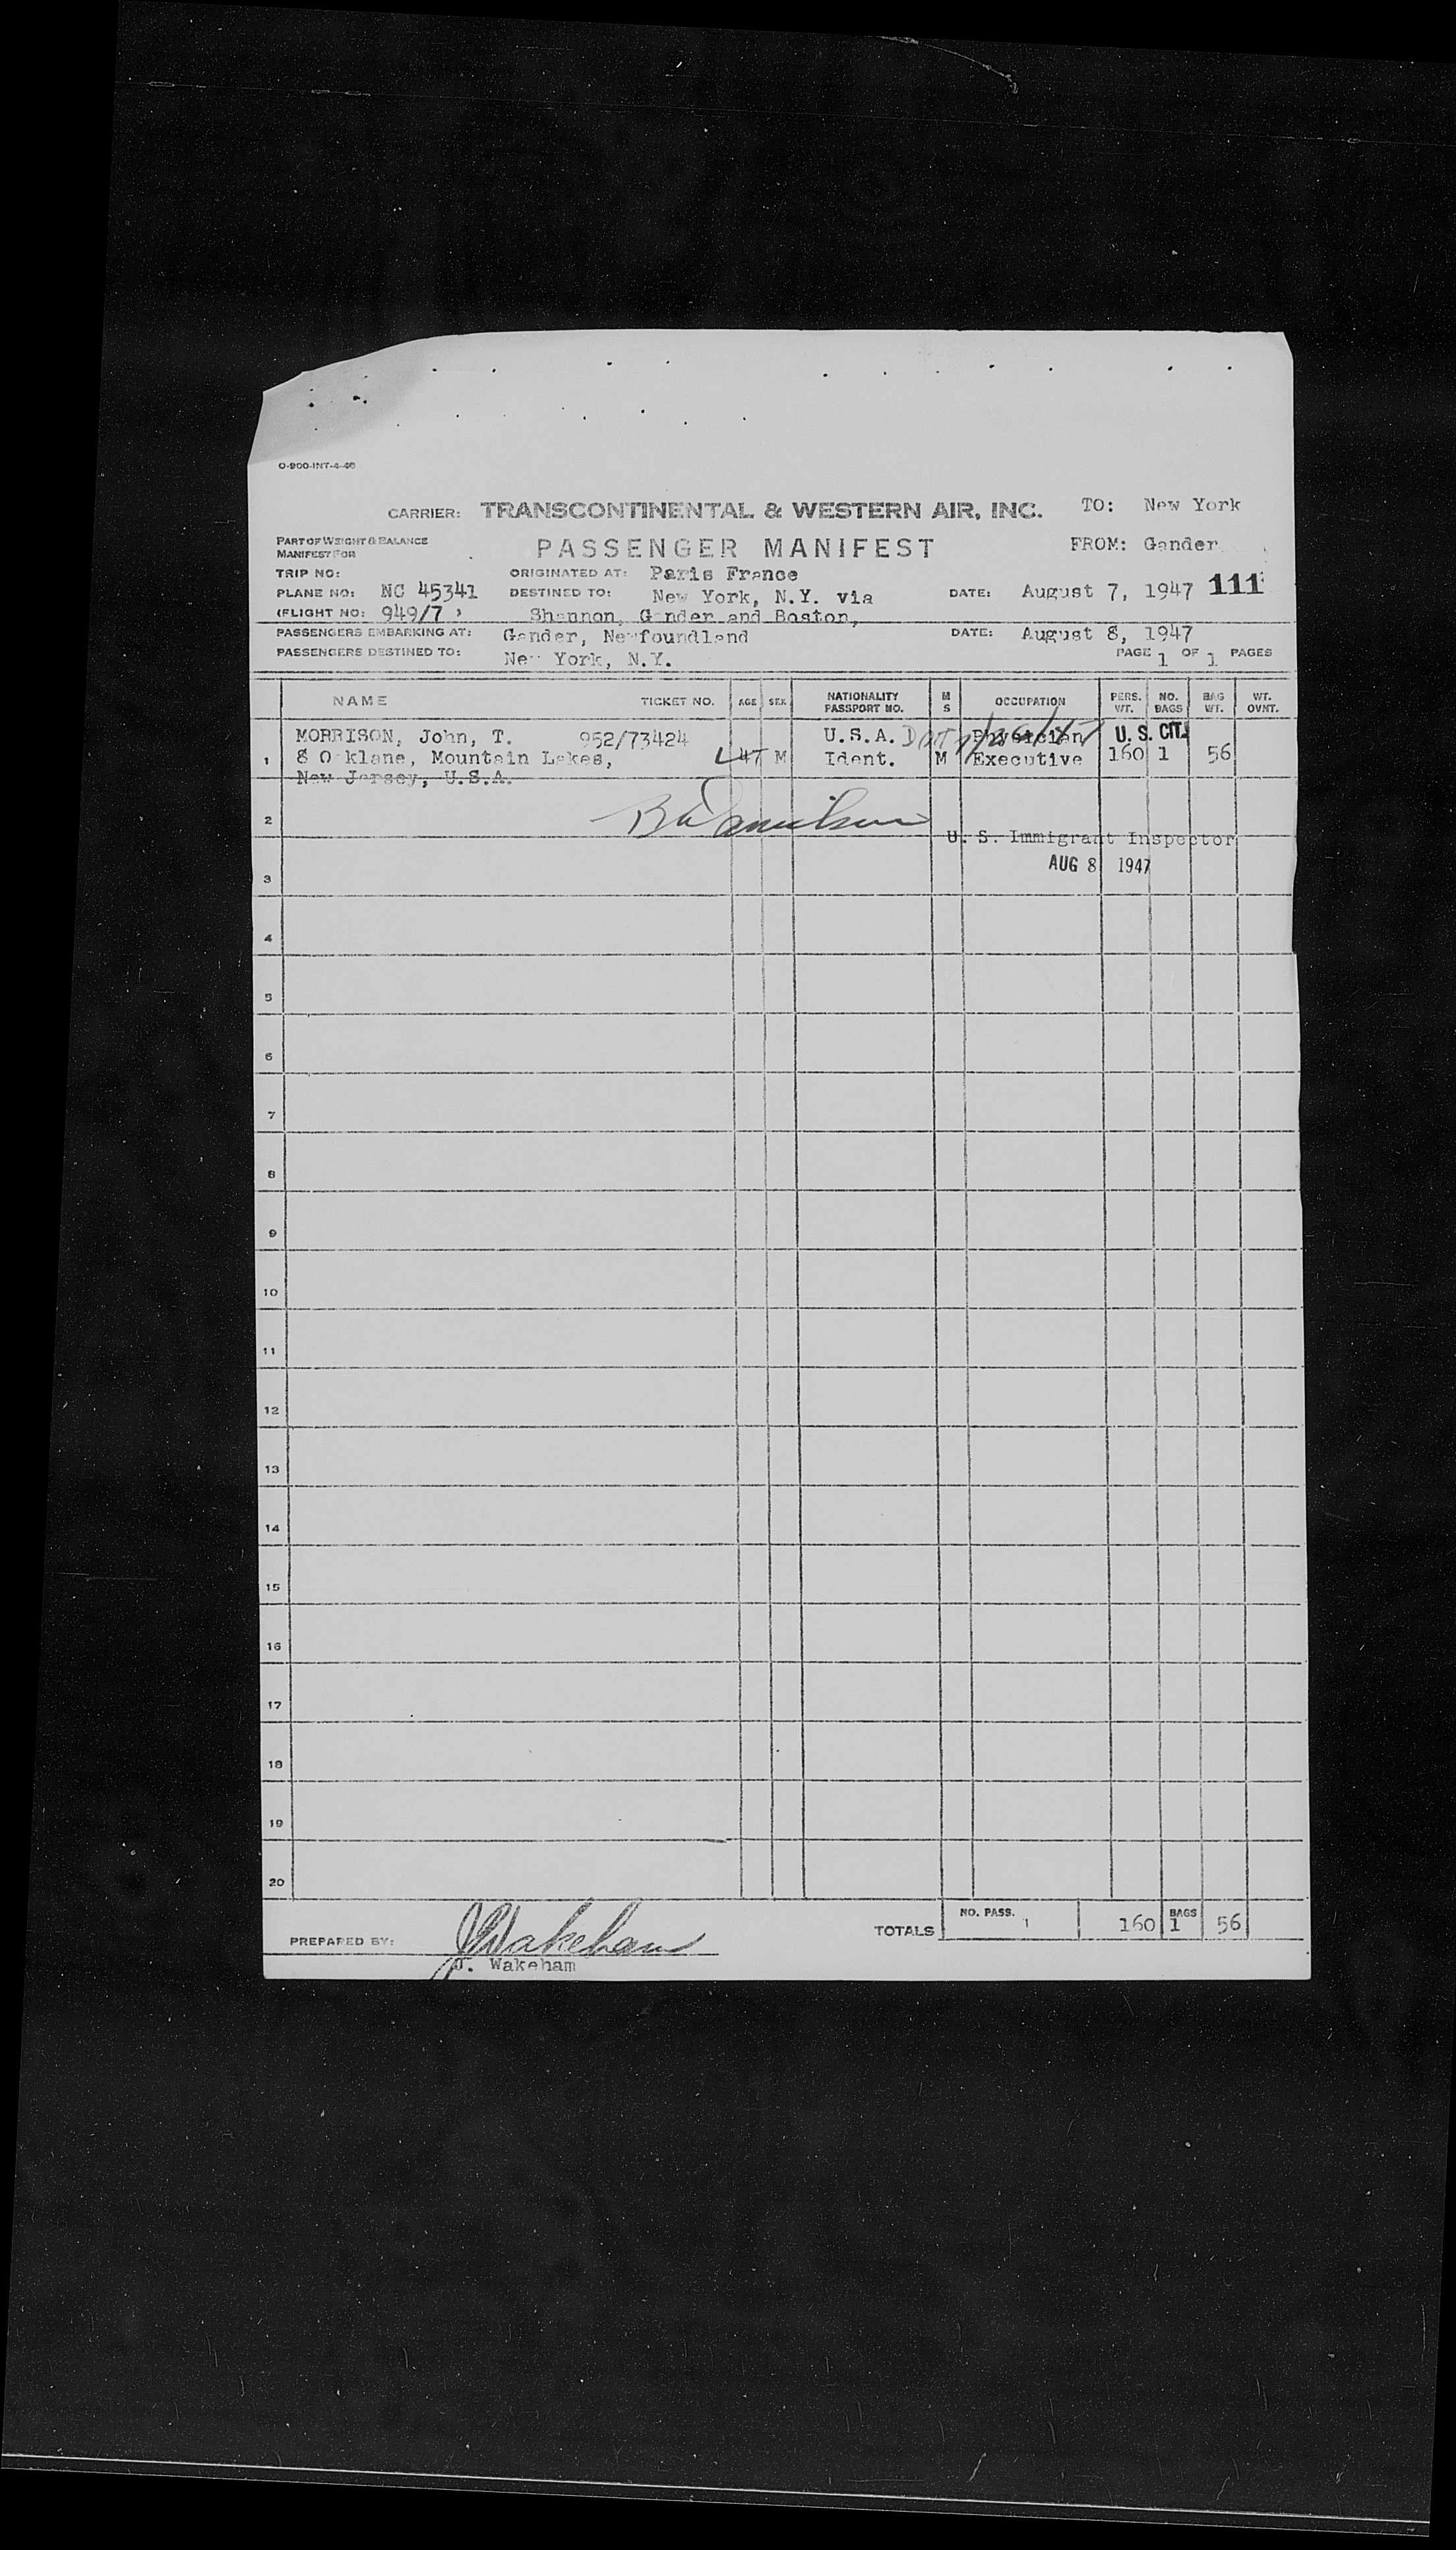 O-900-INT-4-46
CARRIER: TRANSCONTINENTAL & WESTERN AIR, INC. TO: New York
PART OF WEIGHT & BALANCE
MANIFEST FOR
PASSENGER MANIFEST FROM: Gander
TRIP NO: ORIGINATED AT: Paris France
PLANE NO: NC 45341 DESTINED TO: New York, N.Y. via DATE: August 7, 1947 111
(FLIGHT NO: 949/7 ) Shannon, Gander and Boston,
PASSENGERS EMBARKING AT: Gander, Newfoundland DATE: August 8, 1947
PASSENGERS DESTINED TO: New York, N.Y. PAGE 1 OF 1 PAGES
NAME TICKET NO. AGE SEX NATIONALITY PASSPORT NO. M S OCCUPATION PERS. WT. NO. BAGS BAG WT. WT. OVNT.
MORRISON, John, T. 952/73424 U.S.A. U. S. CIT.
1 8 Oaklane, Mountain Lakes, 47 M Ident. M Executive 160 1 56
New Jersey, U.S.A.
2
U. S. Immigrant Inspector
3 AUG 8 1947
4
5
6
7
8
9
10
11
12
13
14
15
16
17
18
19
20
NO. PASS. 1 160 BAGS 1 56
TOTALS
PREPARED BY: J Wakeham
J. Wakeham